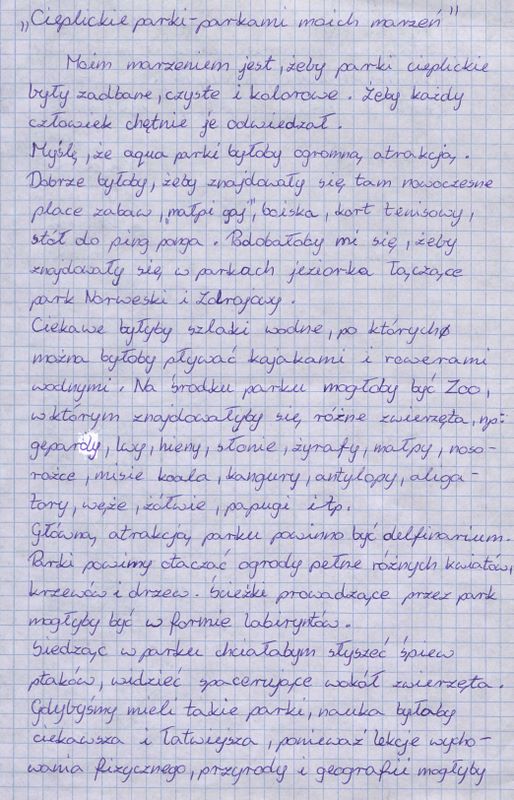 „Cieplickie parki-parkami moich marzeń”
Moim marzeniem jest, żeby parki cieplickie
były zadbane, czyste i kolorowe. Żeby każdy
człowiek chętnie je odwiedzał.
Myślę, że aqua parki byłoby ogromną atrakcją.
Dobrze byłoby, żeby znajdowały się tam nowoczesne
place zabaw, "małpi gaj", boiska, kort tenisowy,
stół do ping ponga. Podobałoby mi się, żeby
znajdowały się w parkach jeziorka łączące
park Norweski i Zdrojowy.
Ciekawe byłyby szlaki wodne, po których
można byłoby pływać kajakami i rowerami
wodnymi. Na środku parku mogłoby być Zoo,
w którym znajdowałyby się różne zwierzęta, np:
gepardy, lwy, hieny, słonie, żyrafy, małpy, noso-
rożce, misie koala, kangury, antylopy, aliga-
tory, węże, żółwie, papugi itp.
Główną atrakcją parku powinno być delfinarium.
Parki powinny otaczać ogrody pełne różnych kwiatów,
krzewów i drzew. Ścieżki prowadzące przez park
mogłyby być w formie labiryntów.
Siedząc w parku chciałabym słyszeć śpiew
ptaków, widzieć spacerujące wokół zwierzęta.
Gdybyśmy mieli takie parki, nauka byłaby
ciekawsza i łatwiejsza, ponieważ lekcje wycho-
wania fizycznego, przyrody i geografii mogłyby